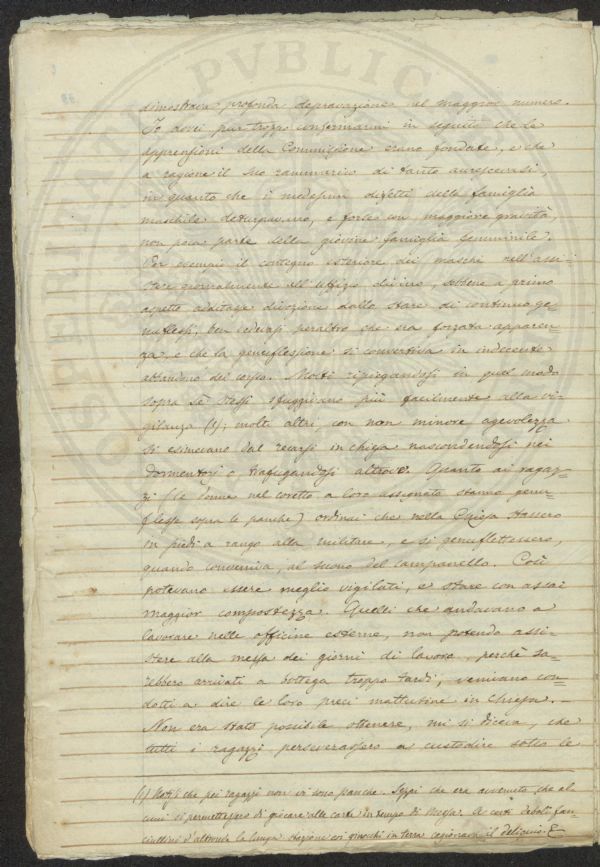 dimostrava profonda depravazione nel maggior numero.
Io dovei pur troppo confermarmi in seguito che le
apprensioni della Commissione erano fondate, e che
a ragione il suo rammarico di tanto accrescevasi,
in quanto che i medesimi difetti della famiglia
maschile deturpavano, e forse con maggiore gravità,
non poca parte della giovine famiglia femminile.
Per esempio il contegno esteriore dei maschi nell'assi=
stere giornalmente all'uffizio divino, sebbene a primo
aspetto additasse divozione dallo stare di continuo ge=
nuflessi; ben vedevasi peraltro che era forzata apparen=
za, e che la genuflessione si convertiva in indecente
abbandono del corpo. Molti ripiegandosi in quel modo
sopra sè stessi sfuggivano più facilmente alla vi=
gilanza (1); molti altri, con non minore agevolezza
si esimevano dal recarsi in chiesa nascondendosi nei
Dormentorj o trafugandosi altrove. Quanto ai ragaz=
zi (le Donne nel coretto a loro assegnato stanno genu=
flesse sopra le panche) ordinai che nella Chiesa stassero
in piedi a rango alla militare, e si genuflettessero,
quando conveniva, al suono del campanello. Così
potevano essere meglio vigilati, e stare con assai
maggior compostezza. Quelli che andavano a
lavorare nelle officine esterne, non potendo assi=
stere alla messa dei giorni di lavoro, perchè sa=
rebbero arrivati a bottega troppo tardi, venivano con=
dotti a dire le loro preci mattutine in Chiesa. _
Non era stato possibile ottenere, mi si diceva, che
tutti i ragazzi perseverassero a custodire sotto le
(1) Notisi che pei ragazzi non vi sono panche. Seppi che era avvenuto, che al=
cuni si permettessero di giocare alle carte in tempo di Messa. A certi deboli fan=
ciullini d'altronde la lunga stazione coi ginocchi in terra cagionava il deliquio. E